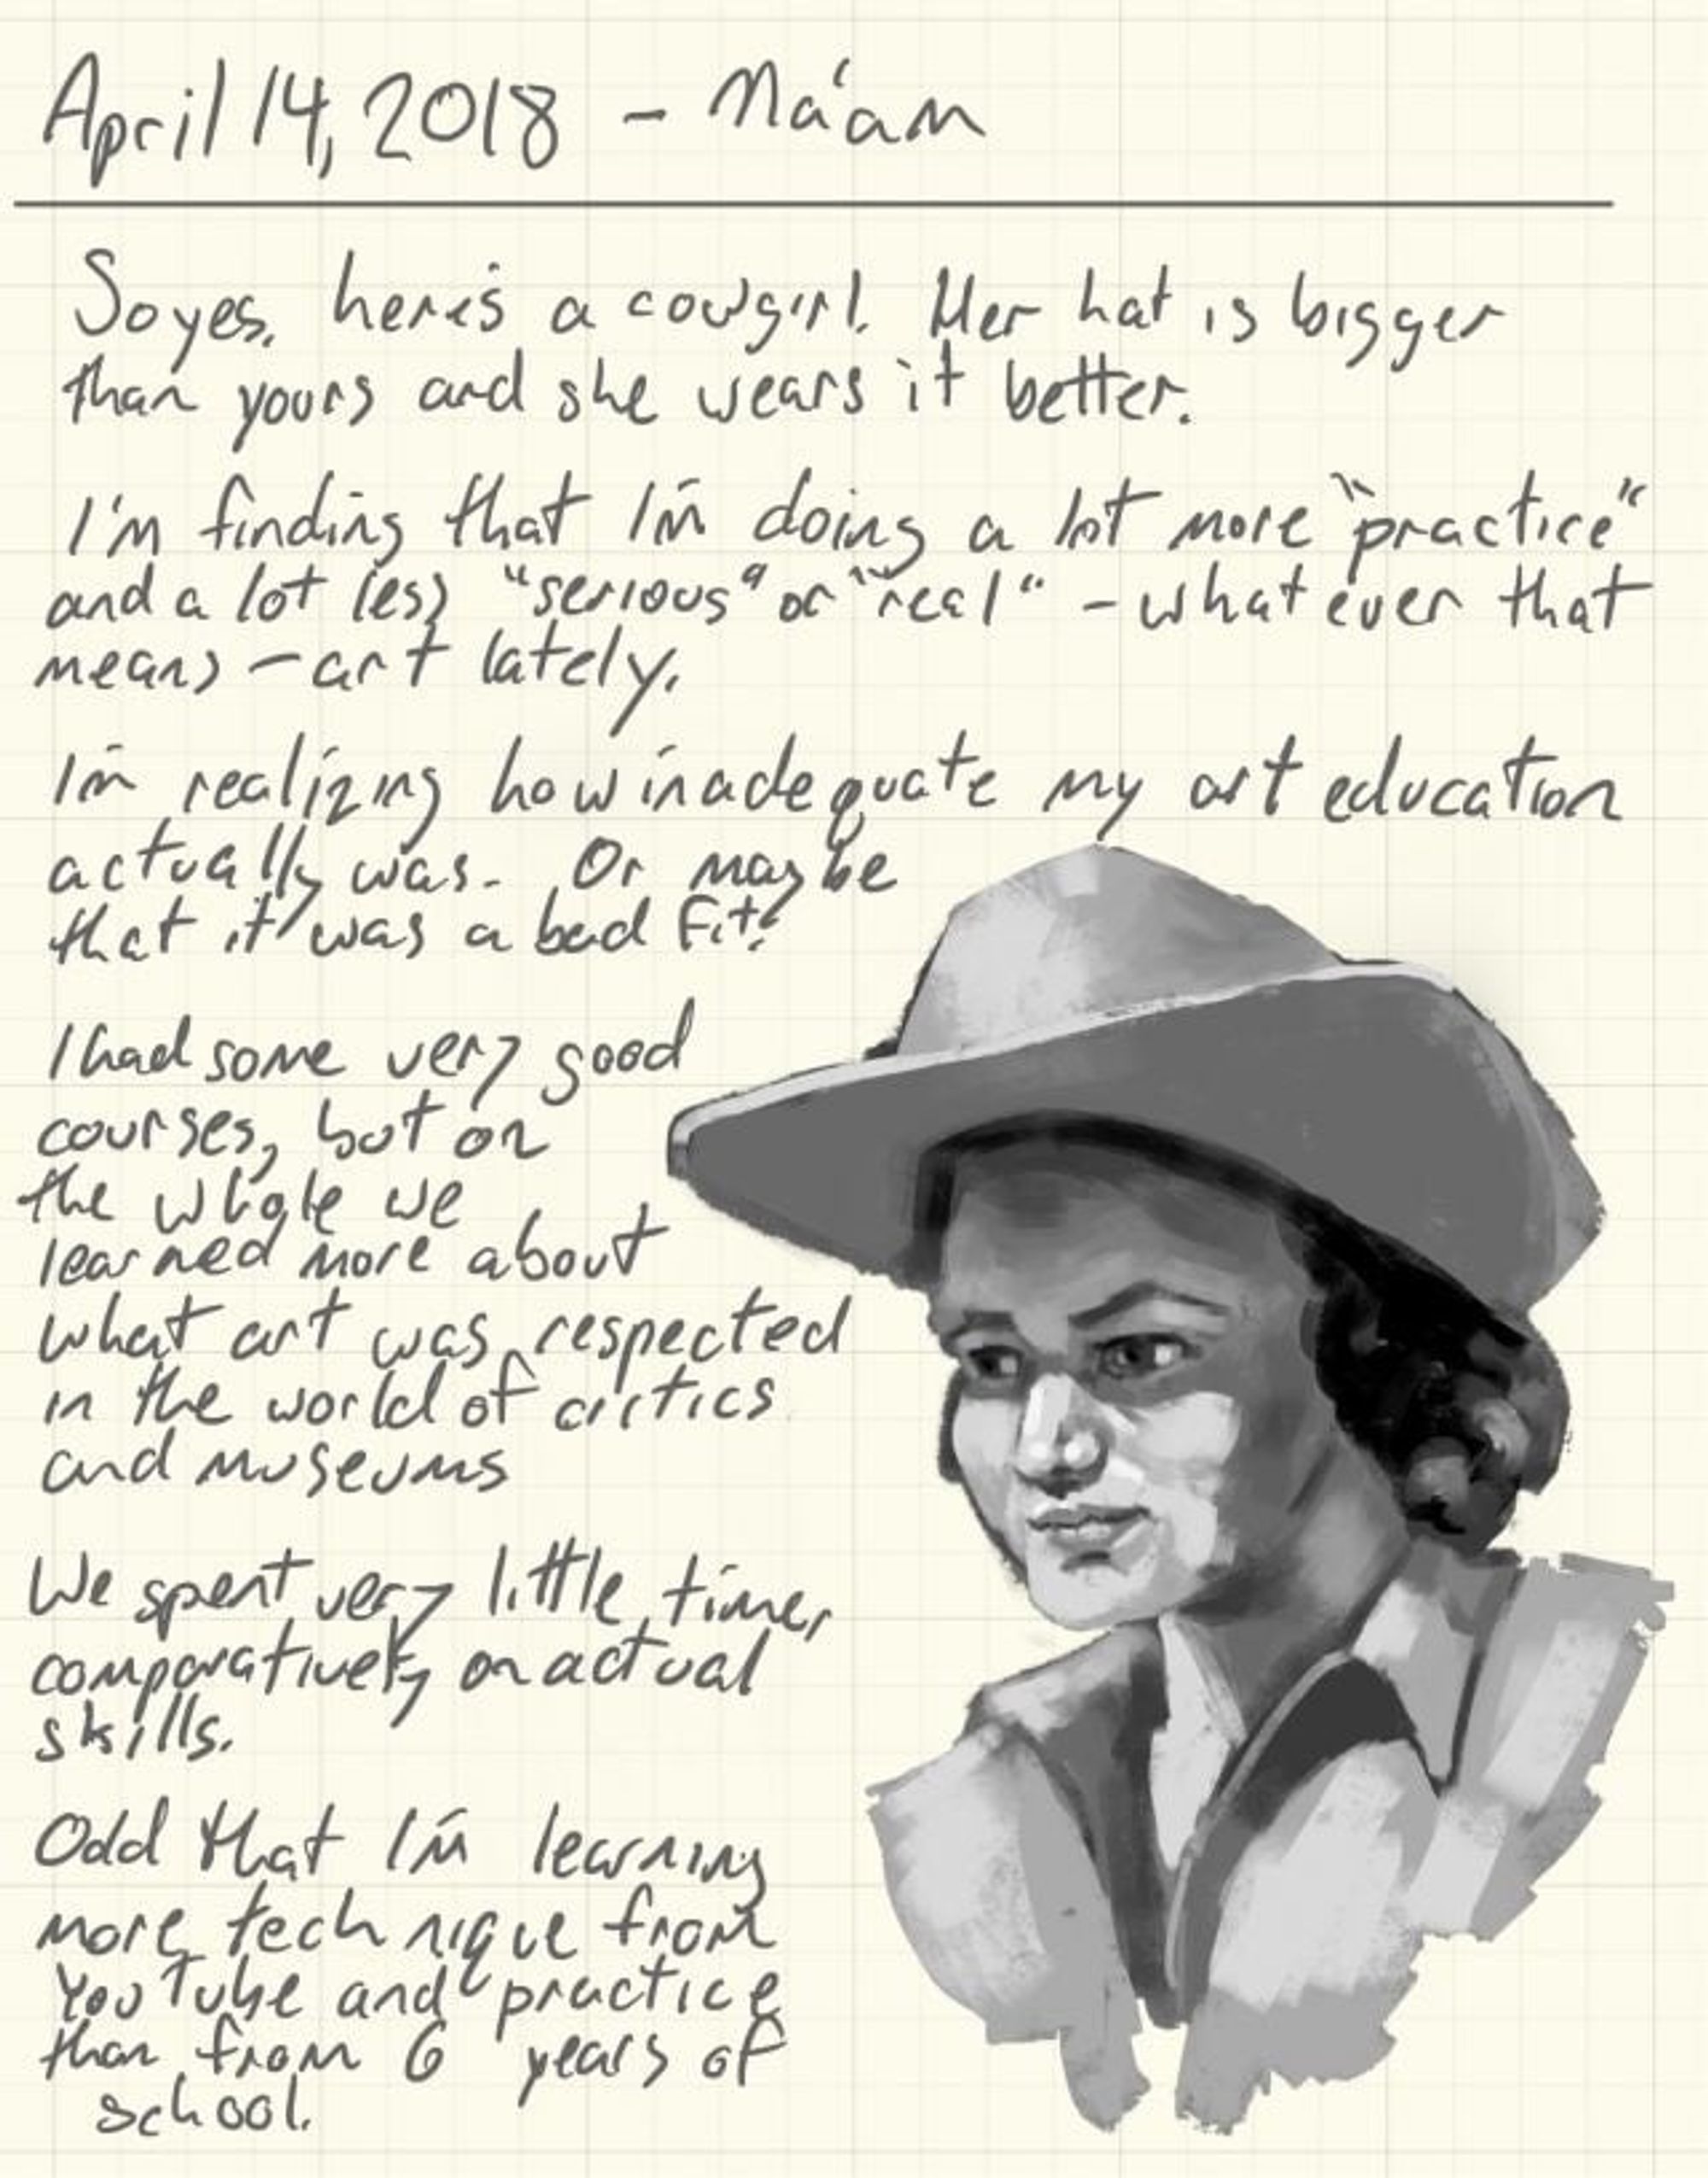 April 14, 2018 - Ma'am
So yes, here's a cowgirl. Her hat is bigger
than yours and she wears it better.
I'm finding that I'm doing a lot more "practice"
and a lot less "serious" or "real" - whatever that
means - art lately.
I'm realizing how inadequate my art education
actually was. Or maybe
that it was a bad fit?
I had some very good
courses, but on
the whole we
learned more about
what art was respected
in the world of critics
and museums
We spent very little time,
comparatively on actual
skills.
Odd that I'm learning
more technique from
YouTube and practice
than from 6 years of
school.